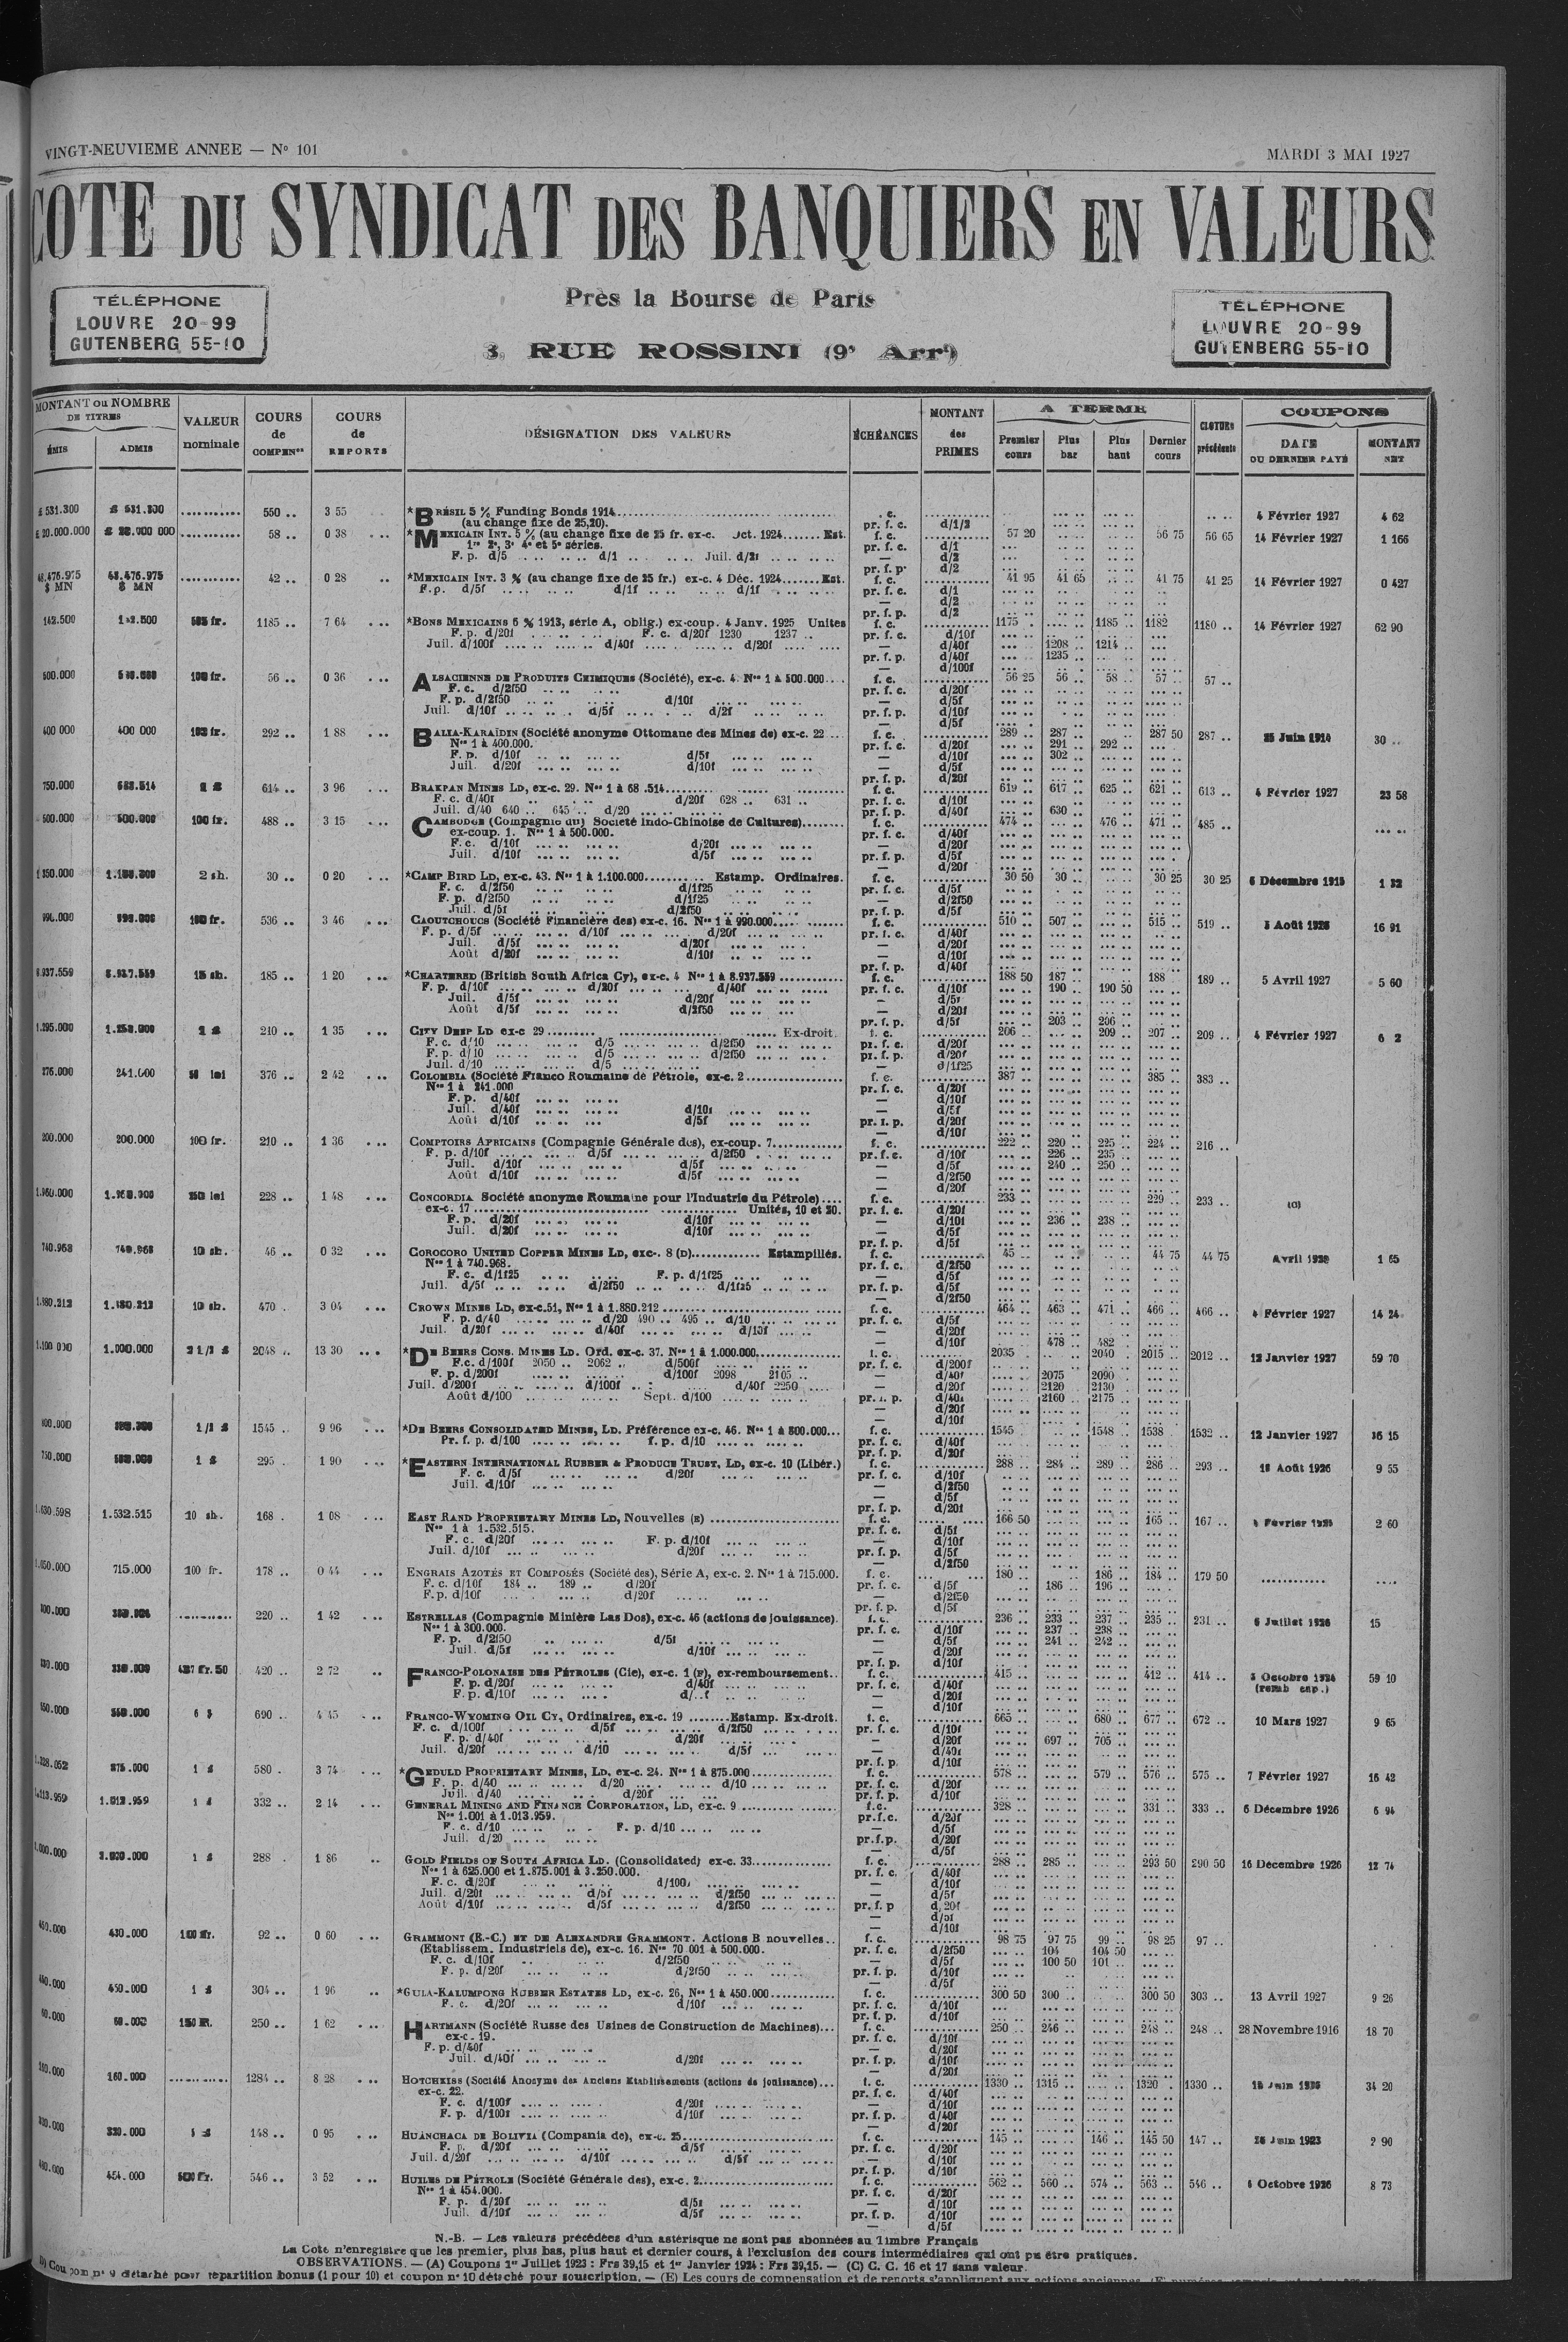 VINGT-NEUVIEME ANNEE — Nº 101
MARDI 3 MAI 1927
COTE DU SYNDICAT DES BANQUIERS EN VALEURS
TÉLÉPHONE
LOUVRE 20-99
GUTENBERG 55-10
Près la Bourse de Paris
RUE ROSSINI (9e Arrt)
TÉLÉPHONE
LOUVRE 20-99
GUTENBERG 55-10
MONTANT ou NOMBRE DE TITRES
ÉMIS
ADMIS
VALEUR nominale
COURS de COMPENon
COURS de REPORTS
DÉSIGNATION DES VALEURS
ÉCHÉANCES
MONTANT des PRIMES
A TERME
Premier cours
Plus bas
Plus haut
Dernier cours
CLOTURE précédente
COUPONS
DATE DU DERNIER PAYÉ
MONTANT NET
550 .. 3 55 *BRÉSIL 5 % Funding Bonds 1914 4 Février 1927 4 62
(au change fixe de 25,20). pr. f. c. d/1/2
58 .. 0 38 *MEXICAIN INT. 5 % (au change fixe de 25 fr. ex-c. Oct. 1924 Est. f. c. 57 20 56 75 56 65 14 Février 1927 1 166
1re 2e, 3e 4e et 5e séries. pr. f. c. d/1
F. p. d/5 d/1 Juil. d/2f
42 .. 0 28 *MEXICAIN INT. 3 % (au change fixe de 25 fr.) ex-c. 4 Déc. 1924 Est. f. c. 41 95 41 65 41 75 41 25 14 Février 1927 0 427
F.p. d/5f d/1f d/1f pr. f. c. d/1
1185 .. 7 64 *BONS MEXICAINS 6 % 1913, série A, oblig.) ex-coup. 4 Janv. 1925 Unites f. c. 1175 1185 .. 1182 1180 .. 14 Février 1927 62 90
F. p. d/20f F. c. d/20f 1230 1237 .. pr. f. c. d/10f
Juil. d/100f d/40f d/20f — d/40f 1208 .. 1214 ..
pr. f. p. d/40f 1235 ..
— d/100f
500.000 100 fr. 56 .. 0 36 ALSACIENNE DE PRODUITS CHIMIQUES (Société), ex-c. 4. Nos 1 à 500.000 f. c. 56 25 56 .. 58 .. 57 .. 57 ..
F. c. d/2f50 pr. f. c. d/20f
F. p. d/2f50 d/10f — d/5f
Juil. d/10f d/5f d/2f pr. f. p. d/10f
— d/5f
400 000 400 000 292 .. 1 88 BALIA-KARAÏDIN (Société anonyme Ottomane des Mines de) ex-c. 22 f. c. 289 .. 287 .. 287 50 287 .. 25 Juin 1914 30 ..
Nos 1 à 400.000. pr. f. c. d/20f 291 .. 292 ..
F. p. d/10f d/5f — d/10f 302 ..
Juil. d/20f d/10f — d/5f
pr. f. p. d/20f
750.000 614 .. 3 96 BRAKPAN MINES LD, ex-c. 29. f. c. 619 .. 617 .. 625 .. 621 .. 613 .. 4 Février 1927 23 58
F. c. d/40f d/20f 628 .. 631 .. pr. f. c. d/10f
Juil. d/40 640 .. 645 .. d/20 pr. f. p. d/40f 630 ..
500.000 500.000 100 fr. 488 .. 3 15 CAMBODGE (Compagnie du) Société Indo-Chinoise de Cultures) f. c. 474 .. 476 .. 471 .. 485 ..
ex-coup. 1. Nos 1 à 500.000. pr. f. c. d/40f
F. c. d/10f d/20f — d/20f
Juil. d/10f d/5f pr. f. p. d/5f
— d/20f
2 sh. 30 .. 0 20 *CAMP BIRD LD, ex-c. 43. Nos 1 à 1.100.000 Estamp. Ordinaires. f. c. 30 50 30 .. 30 25 30 25 6 Décembre 1915 1 32
F. c. d/2f50 d/1f25 pr. f. c. d/5f
F. p. d/2f50 d/1f25 — d/2f50
Juil. d/5f d/2f50 pr. f. p. d/5f
100 fr. 536 .. 3 46 CAOUTCHOUCS (Société Financière des) ex-c. 16. Nos 1 à 990.000 f. c. 510 .. 507 .. 515 .. 519 .. 16 91
F. p. d/5f d/10f d/20f pr. f. c. d/40f
Juil. d/5f d/20f — d/20f
Août d/20f d/10f — d/10f
pr. f. p. d/40f
8.937.559 8.937.559 15 sh. 185 .. 1 20 *CHARTERED (British South Africa Cy), ex-c. 4 Nos 1 à 8.937.559 f. c. 188 50 187 .. 188 189 .. 5 Avril 1927 5 60
F. p. d/10f d/20f d/40f pr. f. c. d/10f 190 .. 190 50
Juil. d/5f d/20f — d/5f
Août d/5f d/2f50 — d/20f
pr. f. p. d/5f 203 .. 206 ..
210 .. 1 35 CITY DEEP LD ex-c 29 Ex-droit. f. c. 206 .. 209 .. 207 .. 209 .. 4 Février 1927
F. c. d/10 d/5 d/2f50 pr. f. c. d/20f
F. p. d/10 d/5 d/2f50 pr. f. p. d/20f
Juil. d/10 d/5 — d/1f25
241.000 376 .. 2 42 COLOMBIA (Société Franco Roumaine de Pétrole, ex-c. 2 f. c. 387 .. 385 .. 383 ..
Nos 1 à 241.000 pr. f. c. d/20f
F. p. d/40f — d/10f
Juil. d/40f d/10f — d/5f
Août d/10f d/5f pr. f. p. d/20f
— d/10f
200.000 200.000 100 fr. 210 .. 1 36 COMPTOIRS AFRICAINS (Compagnie Générale des), ex-coup. 7 f. c. 222 .. 220 .. 225 .. 224 .. 216 ..
F. p. d/10f d/5f d/2f50 pr. f. c. d/10f 226 .. 235 ..
Juil. d/10f d/5f — d/5f 240 .. 250 ..
Août d/10f d/5f — d/2f50
— d/20f
250 lei 228 .. 1 48 CONCORDIA Société anonyme Roumaine pour l'Industrie du Pétrole) f. c. 233 .. 229 .. 233 ..
ex-c. 17 Unités, 10 et 20. pr. f. c. d/20f
F. p. d/20f d/10f — d/10f 236 .. 238 ..
Juil. d/20f d/10f — d/5f
pr. f. p. d/5f
740.968 740.968 10 sh. 46 .. 0 32 COROCORO UNITED COPPER MINES LD, exc-. 8 (D) Estampillés. f. c. 45 .. 44 75 44 75 Avril 1920 1 65
Nos 1 à 740.968. pr. f. c. d/2f50
F. c. d/1f25 F. p. d/1f25 — d/5f
Juil. d/5f d/2f50 d/1f25 pr. f. p. d/5f
— d/2f50
1.880.212 1.880.212 10 sh. 470 . 3 04 CROWN MINES LD, ex-c.51, Nos 1 à 1.880.212 f. c. 464 .. 463 .. 471 .. 466 .. 466 .. 4 Février 1927 14 24
F. p. d/40 d/20 490 .. 495 .. d/10 pr. f. c. d/5f
Juil. d/20f d/40f d/10f — d/20f
— d/10f 478 .. 482 ..
1.000.000 2 1/2 £ 2048 .. 13 30 *DE BEERS CONS. MINES LD. Ord. ex-c. 37. Nos 1 à 1.000.000 f. c. 2035 .. 2040 .. 2015 .. 2012 .. 12 Janvier 1927 59 70
F.c. d/100f 2050 .. 2062 .. d/500f pr. f. c. d/200f
F. p. d/200f d/100f 2098 2105 .. — d/40f 2075 2090
Juil. d/200f d/100f d/40f 2250 — d/20f 2120 2130
Août d/100 Sept. d/100 pr. f. p. d/40f 2160 .. 2175 ..
— d/20f
— d/10f
1545 .. 9 96 *DE BEERS CONSOLIDATED MINES, LD. Préférence ex-c. 46. Nos 1 à 800.000 f. c. 1545 1548 .. 1538 1532 .. 12 Janvier 1927 36 15
Pr. f. p. d/100 f. p. d/10 pr. f. c. d/40f
pr. f. p. d/20f
1 £ 295 . 1 90 *EASTERN INTERNATIONAL RUBBER & PRODUCE TRUST, LD, ex-c. 10 (Libér.) f. c. 288 .. 284 .. 289 .. 286 .. 293 .. 18 Août 1926 9 55
F. c. d/5f d/20f pr. f. c. d/10f
Juil. d/10f — d/2f50
— d/5f
pr. f. p. d/20f
1.532.515 10 sh. 168 . 1 08 EAST RAND PROPRIETARY MINES LD, Nouvelles (E) f. c. 166 50 165 .. 167 .. 2 60
Nos 1 à 1.532.515. pr. f. c. d/5f
F. c. d/20f F. p. d/10f — d/10f
Juil. d/10f d/20f pr. f. p. d/5f
— d/2f50
715.000 100 fr. 178 .. 0 44 ENGRAIS AZOTÉS ET COMPOSÉS (Société des), Série A, ex-c. 2. Nos 1 à 715.000. f. c. 180 .. 186 .. 184 .. 179 50
F. c. d/10f 184 .. 189 .. d/20f pr. f. c. d/5f 186 .. 196 ..
F. p. d/10f d/20f — d/2f50
pr. f. p. d/5f
220 .. 1 42 ESTRELLAS (Compagnie Minière Las Dos), ex-c. 46 (actions de jouissance). f. c. 236 .. 233 .. 237 .. 235 .. 231 .. 6 Juillet 1926 15
Nos 1 à 300.000. pr. f. c. d/10f 237 .. 238 ..
F. p. d/2f50 d/5f — d/5f 241 .. 242 ..
Juil. d/5f d/10f — d/20f
pr. f. p. d/10f
420 .. 2 72 FRANCO-POLONAISE DES PÉTROLES (Cie), ex-c. 1 (F), ex-remboursement. f. c. 415 .. 412 .. 414 .. 59 10
F. p. d/20f d/40f pr. f. c. d/40f (remb cap.)
F. p. d/10f — d/20f
— d/10f
690 .. 4 45 FRANCO-WYOMING OIL CY, Ordinaires, ex-c. 19 Estamp. Ex-droit. f. c. 665 .. 680 .. 677 .. 672 .. 10 Mars 1927 9 65
F. c. d/100f d/5f d/2f50 pr. f. c. d/10f
F. p. d/40f d/20f — d/20f 697 .. 705 ..
Juil. d/20f d/10 d/5f — d/40f
pr. f. p. d/10f
875.000 580 . 3 74 *GEDULD PROPRIETARY MINES, LD, ex-c. 24. Nos 1 à 875.000 f. c. 578 .. 579 .. 576 .. 575 .. 7 Février 1927 16 42
F. p. d/40 d/20 d/10 pr. f. c. d/20f
Juil. d/40 d/20f pr. f. p. d/10f
1.013.959 332 .. 2 14 GENERAL MINING AND FINANCE CORPORATION, LD, ex-c. 9 f.c. 328 .. 331 .. 333 .. 6 Décembre 1926 6 94
Nos 1.001 à 1.013.959. pr.f.c. d/20f
F. c. d/10 F. p. d/10 — d/5f
Juil. d/20 pr.f.p. d/20f
— d/5f
1 £ 288 . 1 86 GOLD FIELDS OF SOUTH AFRICA LD. (Consolidated) ex-c. 33 f. c. 288 .. 285 .. 293 50 290 50 16 Décembre 1926 12 74
Nos 1 à 625.000 et 1.875.001 à 3.250.000. pr. f. c. d/40f
F. c. d/20f d/100f — d/10f
Juil. d/20f d/5f d/2f50 — d/5f
Août d/10f d/5f d/2f50 pr. f. p d/20f
— d/5f
— d/10f
430.000 100 fr. 92 .. 0 60 GRAMMONT (E.-C.) ET DE ALEXANDRE GRAMMONT. Actions B nouvelles f. c. 98 75 97 75 99 .. 98 25 97 ..
(Etablissem. Industriels de), ex-c. 16. Nos 70 001 à 500.000. pr. f. c. d/2f50 104 104 50
F. c. d/10f d/2f50 — d/5f 100 50 101 ..
F. p. d/20f d/2f50 pr. f. p. d/10f
— d/5f
450.000 1 £ 304 .. 1 96 *GULA-KALUMPONG RUBBER ESTATES LD, ex-c. 26, Nos 1 à 450.000 f. c. 300 50 300 .. 300 50 303 .. 13 Avril 1927 9 26
F. c. d/20f d/10f pr. f. c. d/10f
pr. f. p. d/10f
250 .. 1 62 HARTMANN (Société Russe des Usines de Construction de Machines) f. c. 250 .. 246 .. 248 .. 248 .. 28 Novembre 1916 18 70
ex-c. 19. pr. f. c. d/10f
F. p. d/40f — d/20f
Juil. d/40f d/20f pr. f. p. d/10f
— d/20f
160.000 1284 .. 8 28 HOTCHKISS (Société Anonyme des Anciens Etablissements (actions de jouissance) f. c. 1330 .. 1315 .. 1320 . 1330 .. 34 20
ex-c. 22. pr. f. c. d/40f
F. c. d/100f d/20f — d/10f
F. p. d/100f d/10f pr. f. p. d/40f
— d/20f
148 .. 0 95 HUANCHACA DE BOLIVIA (Compania de), ex-c. 25 f. c. 145 .. 146 .. 145 50 147 .. 90
F. p. d/20f d/5f pr. f. c. d/20f
Juil. d/20f d/10f d/5f — d/10f
pr. f. p. d/10f
454.000 500 fr. 546 .. 3 52 HUILES DE PÉTROLE (Société Générale des), ex-c. 2 f. c. 562 .. 560 .. 574 .. 563 .. 546 .. Octobre 1926 8 73
Nos 1 à 454.000. pr. f. c. d/20f
F. p. d/20f d/5f — d/10f
Juil. d/10f d/5f pr. f. p. d/10f
— d/5f
N.-B. — Les valeurs précédées d'un astérisque ne sont pas abonnées au Timbre Français
La Cote n'enregistre que les premier, plus bas, plus haut et dernier cours, à l'exclusion des cours intermédiaires qui ont pu être pratiqués.
OBSERVATIONS. — (A) Coupons 1er Juillet 1923 : Frs 39,15 et 1er Janvier 1924 : Frs 39,15. — (C) C. C. 16 et 17 sans valeur.
Coupon nº 9 détaché pour répartition bonus (1 pour 10) et coupon nº 10 détaché pour souscription. — (E) Les cours de compensation et de reports s'appliquent aux actions anciennes.